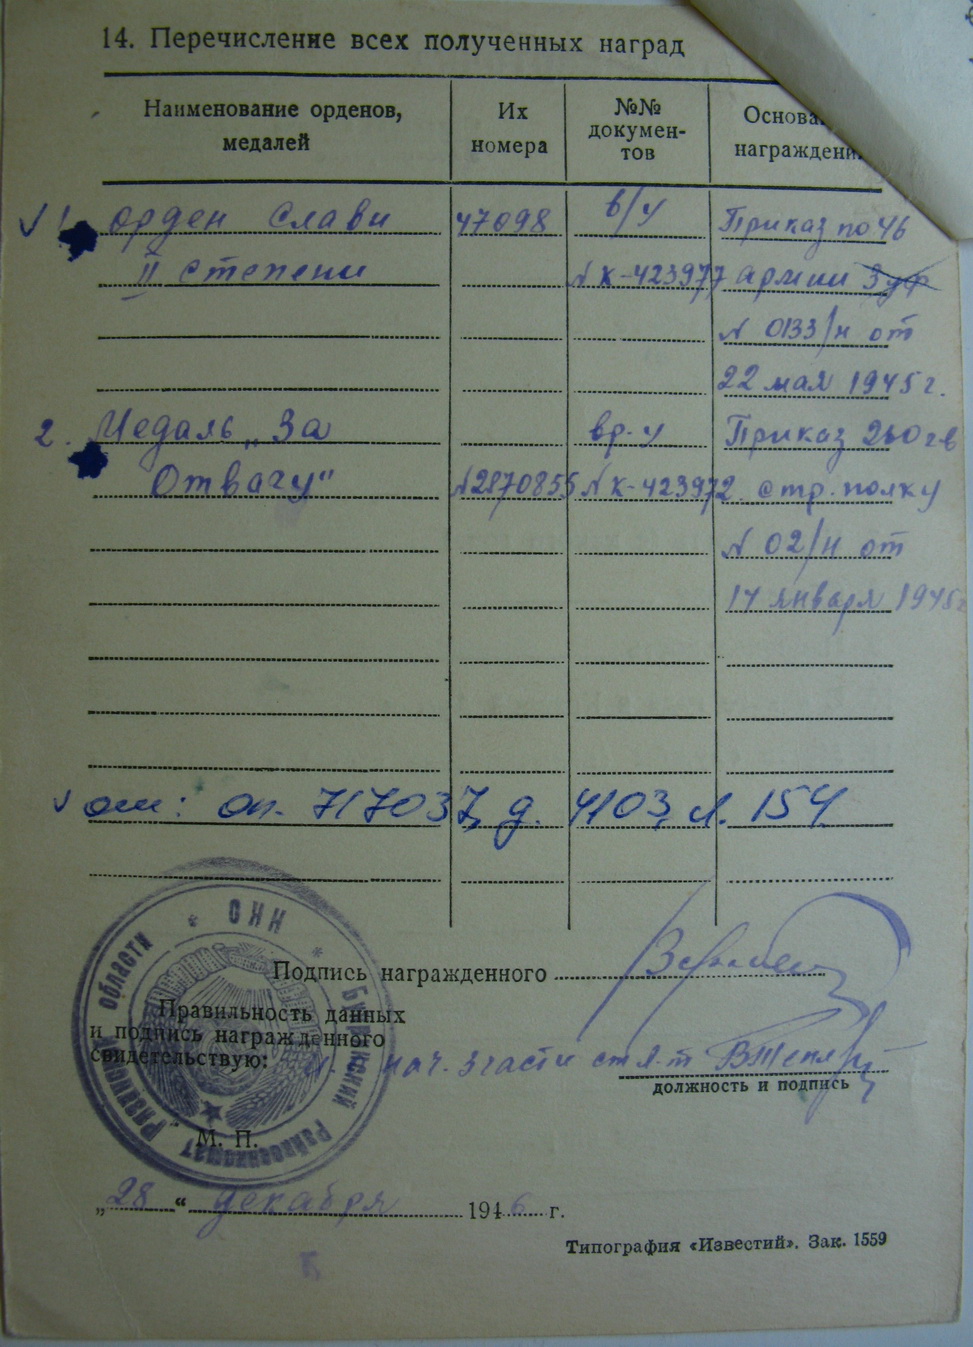 14. Перечисление всех полученных наград
Наименование орденов, медалей
Их номера
№№ докумен-тов
Основа
награждени
1. орден Слави 47098 в/у Приказ по 46
II степени № К-423977 армии 3 уф
№ 0133/н от
22 мая 1945 г.
2. Медаль „За вр. у Приказ 260 гв
Отвагу" № 2870855 № К-423972 стр. полку
№ 02/н от
14 января 1945 г
оп. 717037, д. 4103, л. 154
Подпись награжденного
Правильность данных
и подпись награжденного
свидетельствую: нач. 3 части ст. л-т
должность и подпись
М. П.
„28" декабря 1946 г.
Типография «Известий». Зак. 1559
Райвоенкомат Рязанской области